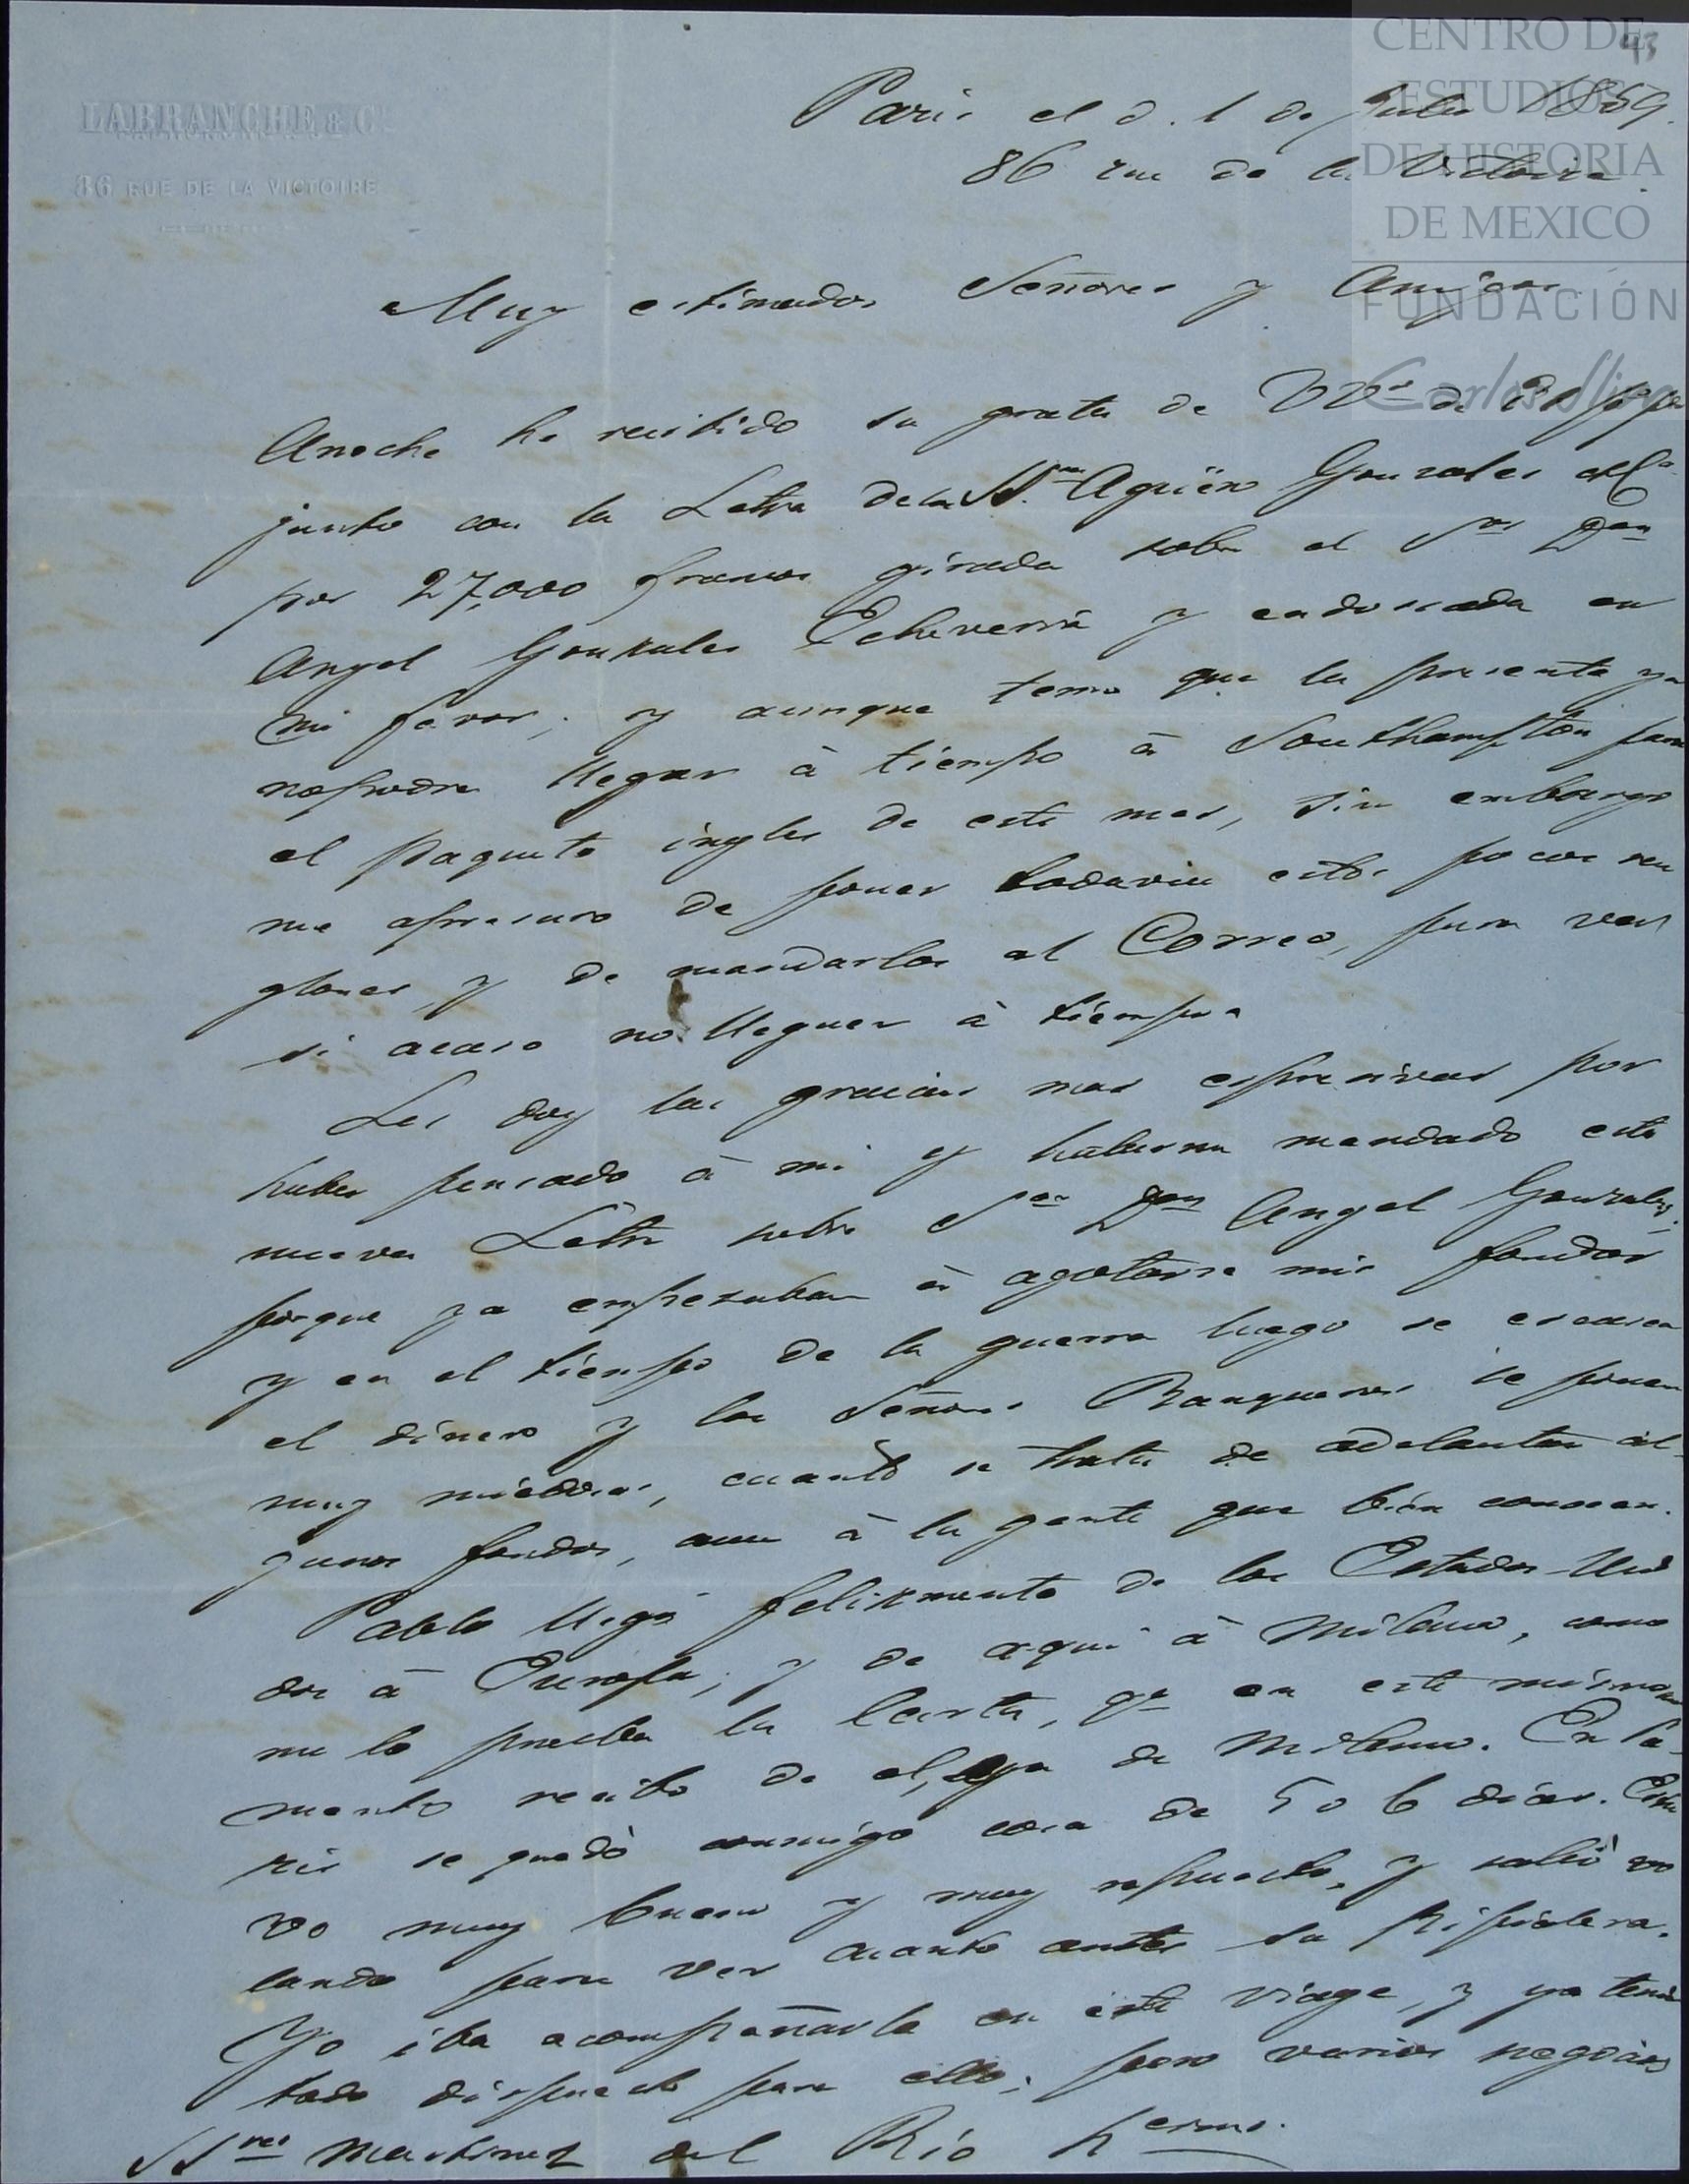 43
CENTRO DE
ESTUDIOS
DE HISTORIA
DE MEXICO
FUNDACIÓN
Carlos Slim
LABRANCHE & Cie
86 RUE DE LA VICTOIRE
Paris el d. 1 de 1859.
86 rue de la Victoire.
Muy estimados Señores y Amigos.
Anoche he recibido su grata de VVs de
junto con la Letra de los SSres Agüero Gonzales & Ca
por 27,000 francos girada sobre el Sor Don
Angel Gonzales Echeverria y endosada en
mi favor; y aunque temo que la presente ya
no podra llegar à tiempo à Southampton para
el paquete ingles de este mes, sin embargo
me apresuro de poner todavia estos pocos ren
glones, y de mandarlos al Correo, para ver
si acaso no lleguen à tiempo.
Les doy las gracias mas espresivas por
haber pensado à mi y haberme mandado esta
nueva Letra sobre Sor Don Angel Gonzales,
porque ya empezaban à agotarse mis fondos
y en el tiempo de la guerra luego se escasea
el dinero y los Señores Banqueros se ponen
muy miedosos, cuando se trata de adelantar al-
gunos fondos, aun à la gente que bien conocen.
Pablo llegó felizmente de los Estados Uni
dos à Europa; y de aqui à Milano, como
me lo prueba la Carta, qe en este mismo mo
mento recibo de el, ya de Milano. En Pa-
ris se quedò conmigo cosa de 5 o 6 dias. Estu
vo muy bueno y muy repuesto, y salió vo
lando para ver cuanto antes su
Yo iba acompañarlo en este viage, y ya tenia
todo dispuesto para ello; pero varios negocios
SSres Martinez del Rio hermos.